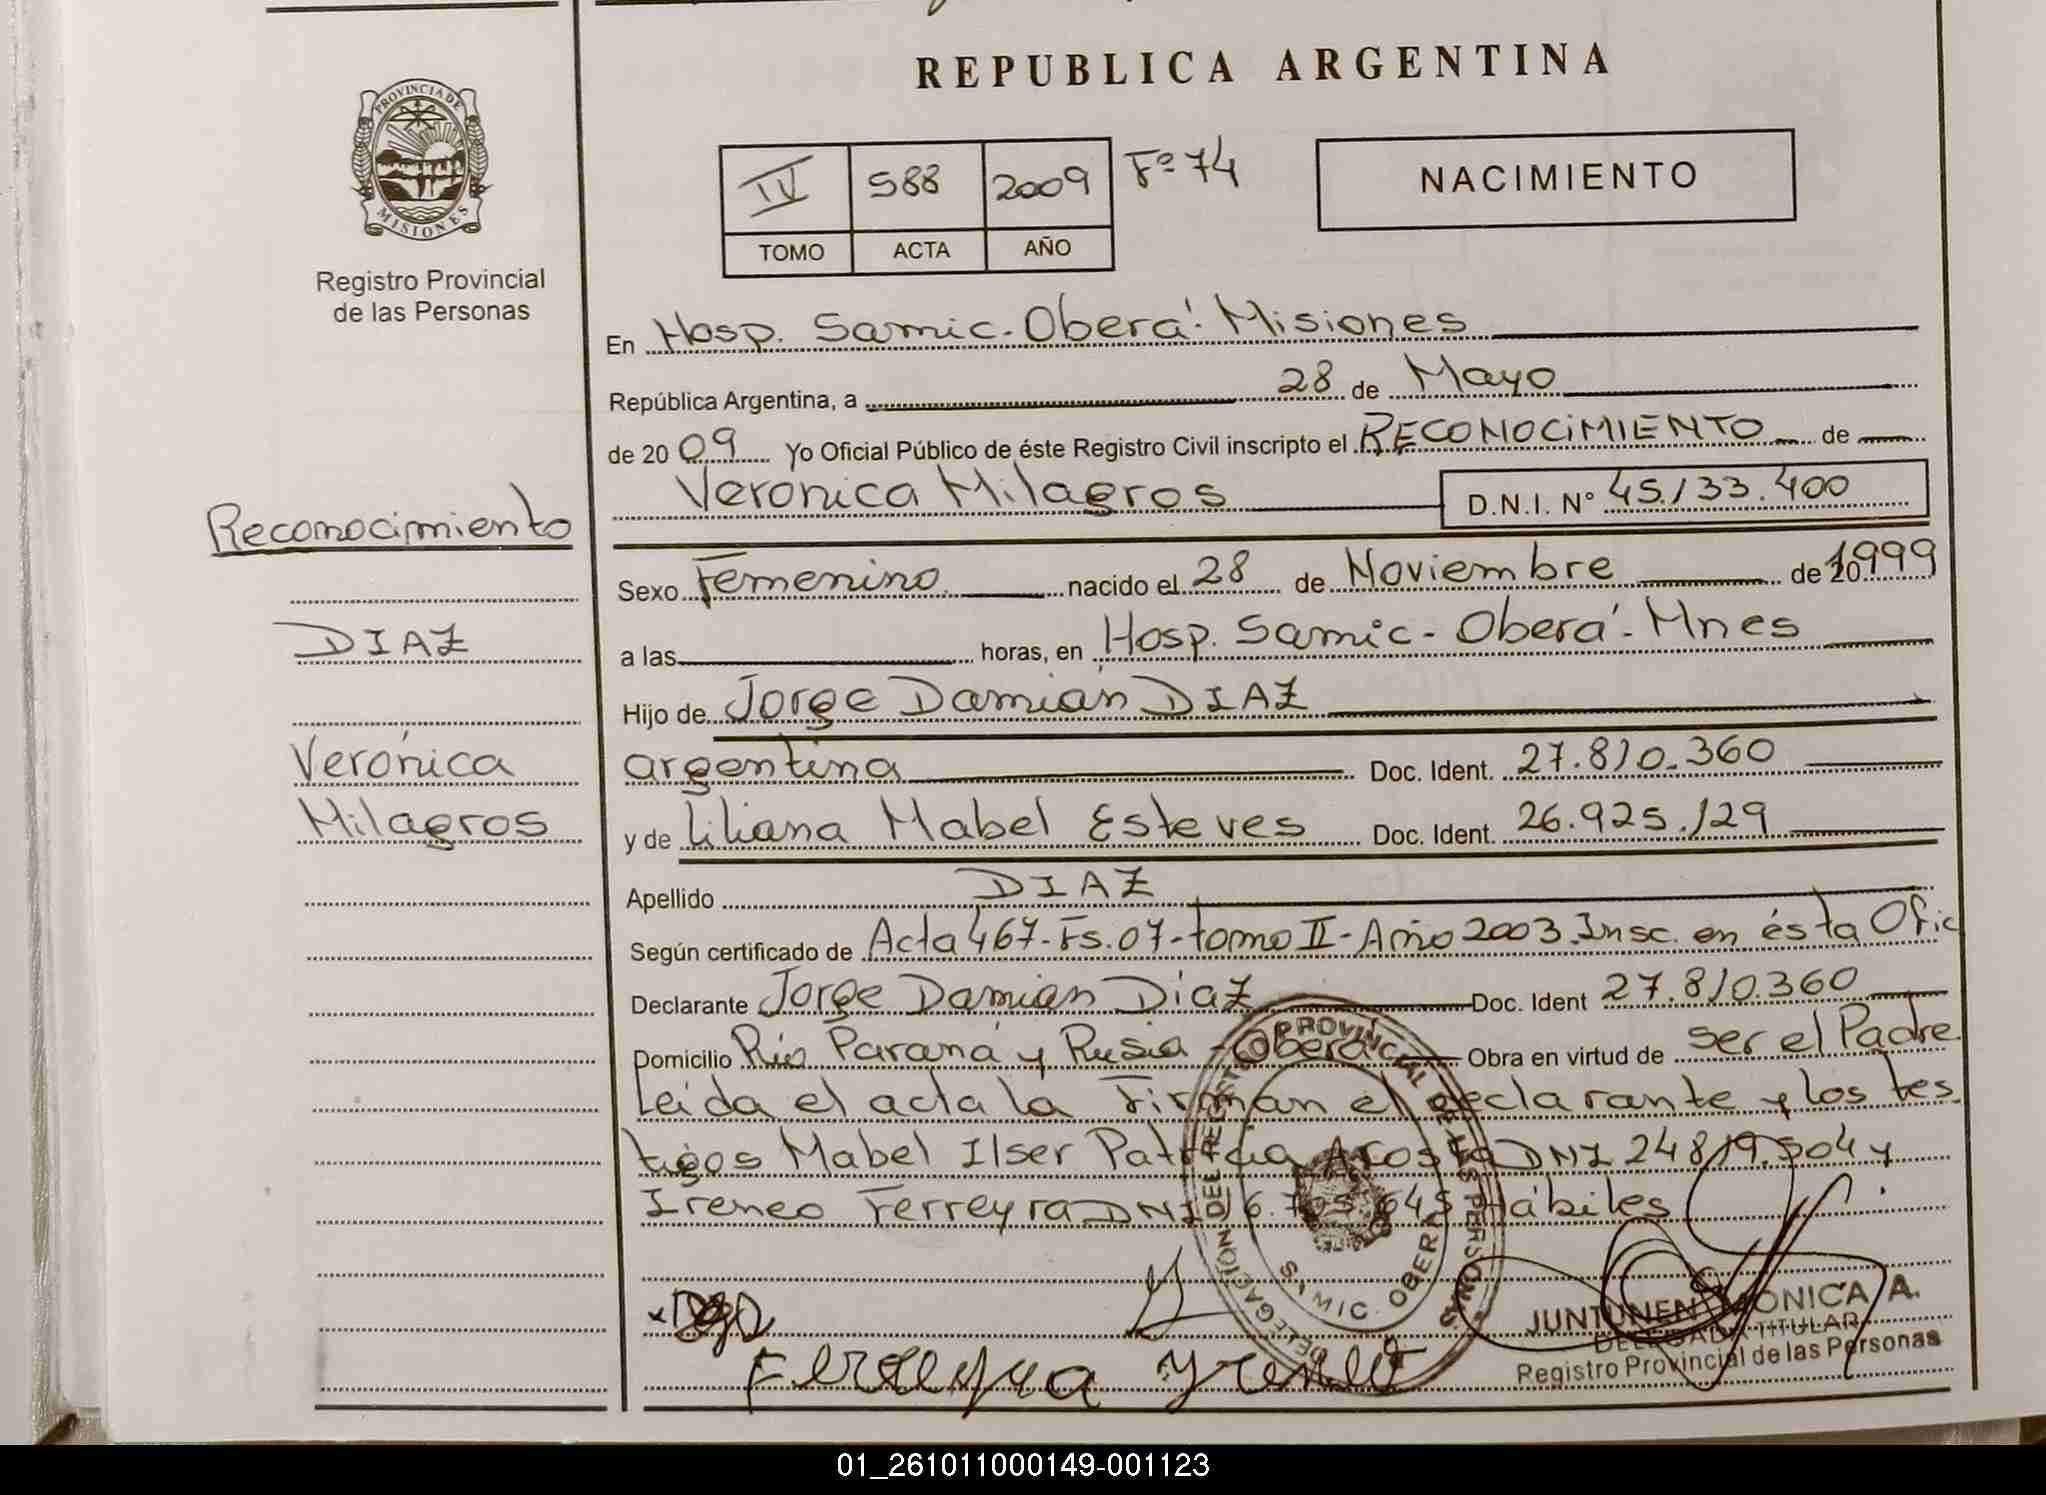 REPUBLICA ARGENTINA
PROVINCIA DE
MISIONES
Registro Provincial
de las Personas
IV 588 2009 Fº 74
TOMO ACTA AÑO
NACIMIENTO
En Hosp. Samic. Oberá. Misiones
República Argentina, a 28 de Mayo
de 2009 Yo Oficial Público de éste Registro Civil inscripto el RECONOCIMIENTO de
Verónica Milagros D.N.I. Nº 45.133.400
Reconocimiento
DIAZ
Verónica
Milagros
Sexo Femenino nacido el 28 de Noviembre de 1999
a las horas, en Hosp. Samic - Oberá - Mnes
Hijo de Jorge Damián DIAZ
argentina Doc. Ident. 27.810.360
y de Liliana Mabel Esteves Doc. Ident. 26.925.129
Apellido DIAZ
Según certificado de Acta 467-Fs.07-tomo II-Año 2003.Insc. en ésta Ofic
Declarante Jorge Damián Díaz Doc. Ident 27.810.360
Domicilio Río Paraná y Rusia - Oberá Obra en virtud de ser el Padre.
Leída el acta la Firman el declarante y los tes
tigos Mabel Ilser Patricia Acosta DNI 24819.504 y
Ireneo Ferreyra DNI 645 Hábiles
DELEGACIÓN DEL REGISTRO PROVINCIAL DE LAS PERSONAS
SAMIC. OBERA
Ferreyra Yreneo
JUNTUNEN MONICA A.
DELEGADA TITULAR
Registro Provincial de las Personas
01_261011000149-001123